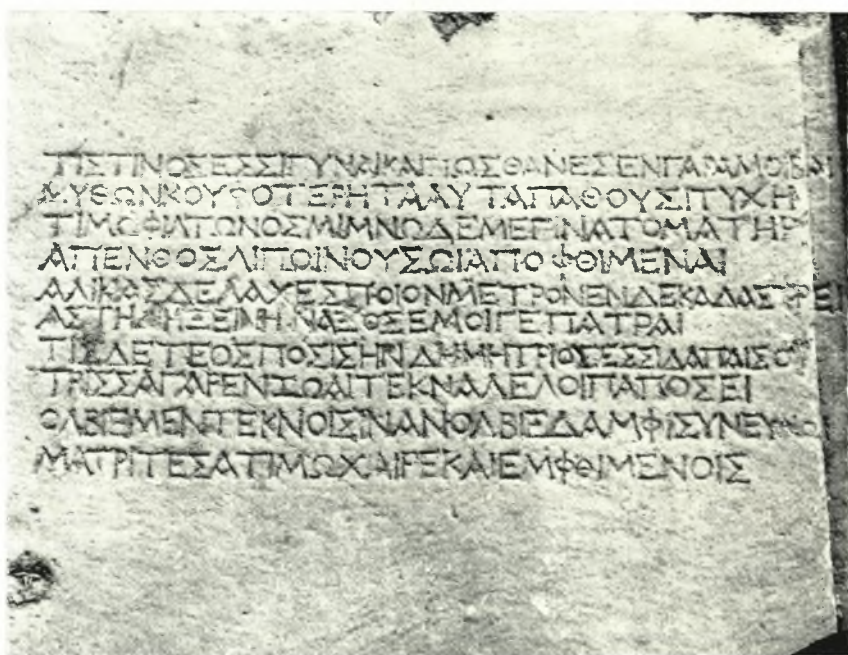 ΤΙΣΤΙΝΟΣΕΣΣΙΓΥΝΑΙΚΑΙΠΩΣΘΑΝΕΣΕΝΓΑΡΑΜΟΙΒΑΙ
ΜΥΘΩΝΚΟΥΦΟΤΕΡΗΤΑΛΥΤΑΠΑΘΟΥΣΙΤΥΧΗ
ΤΙΜΩΦΙΛΤΩΝΟΣΜΙΜΝΩΔΕΜΕΓΙΝΑΤΟΜΑΤΗΡ
ΑΠΕΝΘΟΣΛΙΠΩΙΝΟΥΣΩΙΑΠΟΦΘΙΜΕΝΑΙ
ΑΛΙΚΑΣΔΕΛΑΧΕΣΠΟΙΟΝΜΕΤΡΟΝΕΝΔΕΚΑΔΑΣΤΡΕΙ
ΑΣΤΗΔΗΞΕΙΝΗΝΑΞΟΣΕΜΟΙΓΕΠΑΤΡΑΙ
ΤΙΣΔΕΤΕΟΣΠΟΣΙΣΗΝΔΗΜΗΤΡΙΟΣΕΣΣΙΔΑΠΑΙΣΟ
ΤΡΙΣΣΑΓΑΡΕΝΖΩΑΙΤΕΚΝΑΛΕΛΟΙΠΑΠΟΣΕΙ
ΟΛΒΙΕΜΕΝΤΕΚΝΟΙΣΙΝΑΝΟΛΒΙΕΔΑΜΦΙΣΥΝΕΥΝΟΙ
ΜΑΤΡΙΤΕΣΑΤΙΜΩΧΑΙΡΕΚΑΙΕΜΦΘΙΜΕΝΟΙΣ